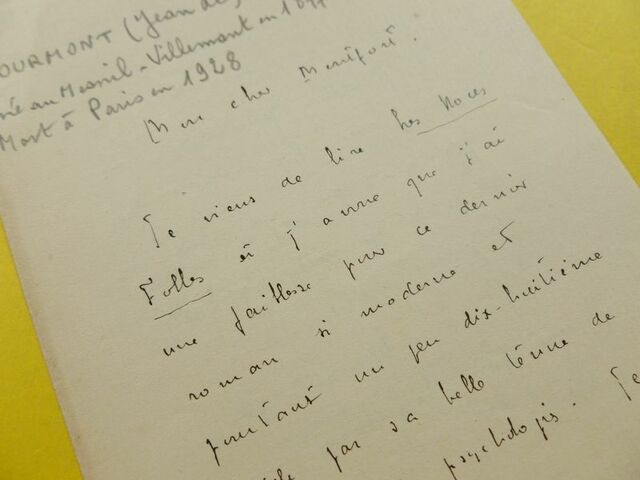 OURMONT (Jean de)
née au Mesnil-Villemont en 1877
Mort à Paris en 1928
Mon cher Montfort.
Je viens de lire Les Noces
Folles et j'avoue que j'ai
une faiblesse pour ce dernier
roman si moderne et
pourtant un peu dix-huitième
par sa belle tenue de
psychologie. Je